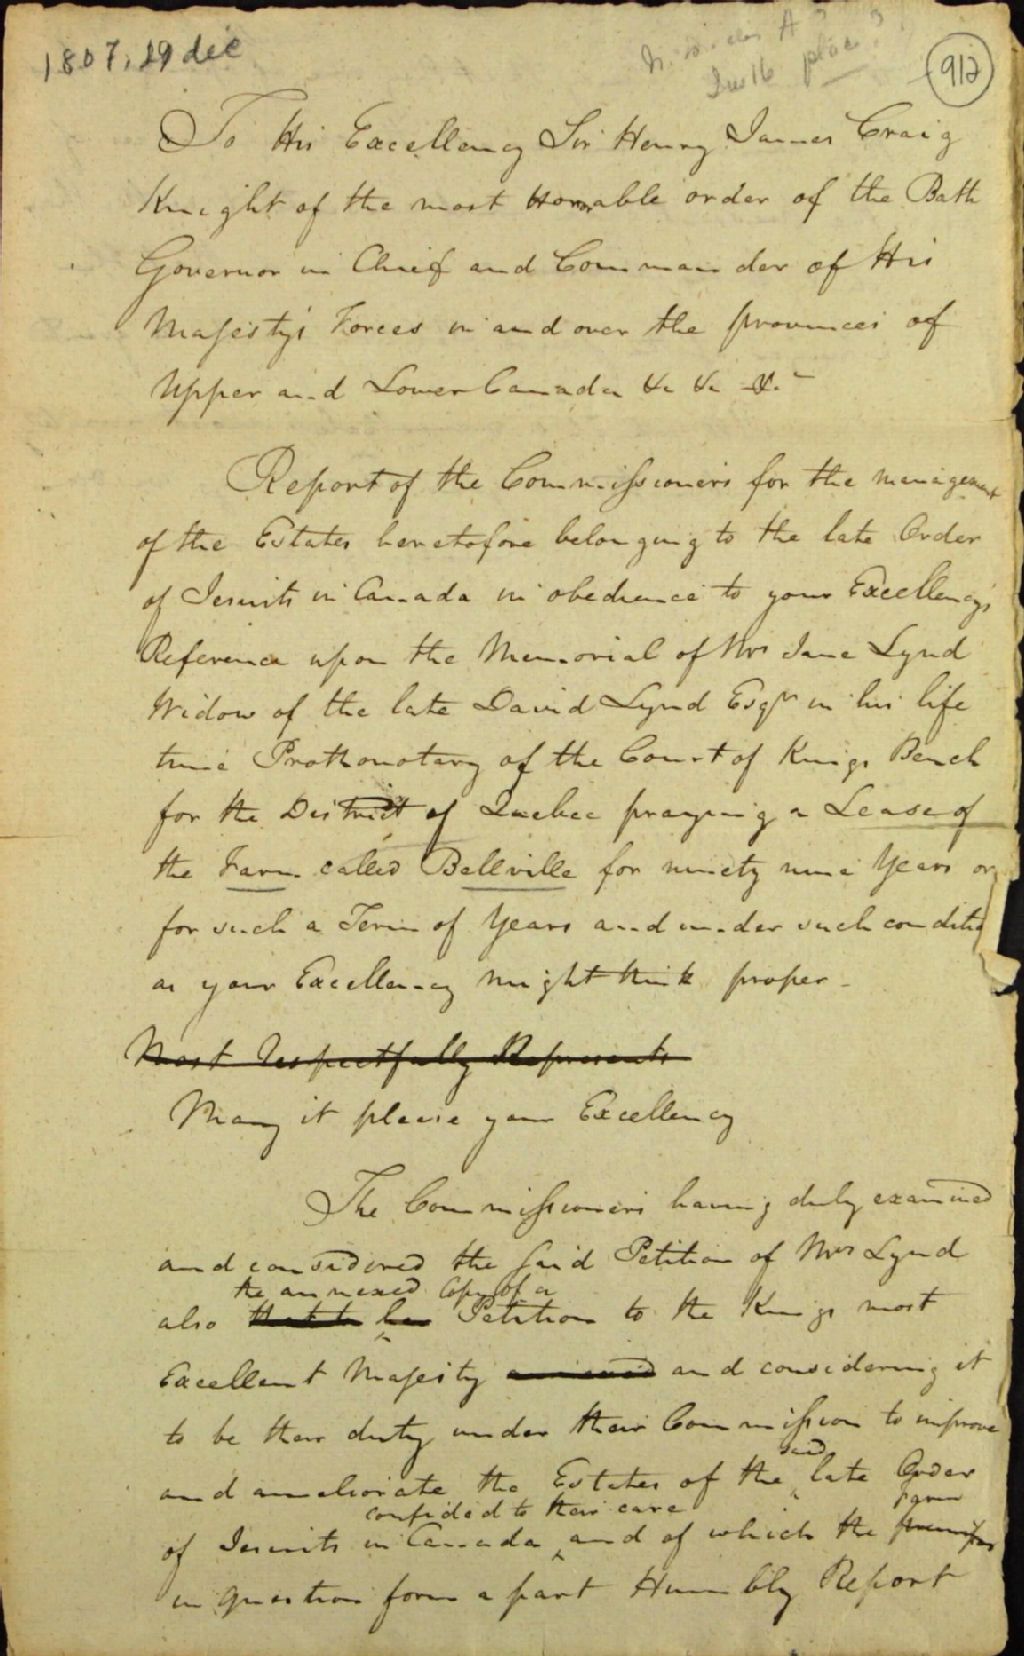 1807, 29 dec
place?
912
To His Excellency Sir Henry James Craig
Knight of the most Honorable order of the Bath
Governor in Chief and Commander of His
Majesty's Forces in and over the provinces of
Upper and Lower Canada &c &c &c
Report of the Commissioners for the management
of the Estates heretofore belonging to the late Order
of Jesuits in Canada in obedience to your Excellency's
Reference upon the Memorial of Mrs Jane Lynd
Widow of the late David Lynd Esqr in his life
time Prothonotary of the Court of Kings Bench
for the District of Quebec praying a Lease of
the Farm called Bellville for ninety nine Years or
for such a Term of Years and under such conditio
as your Excellency might think proper -
Most Respectfully Represents
May it please your Excellency
The Commissioners having duly examined
and considered the said Petition of Mrs Lynd
the annexed Copy of a
also her Petition to the Kings most
Excellent Majesty annexed and considering it
to be their duty under their Commission to improve
said
and ameliorate the Estates of the late Order
confided to their care Farm
of Jesuits in Canada and of which the premises
in question form a part Humbly Report